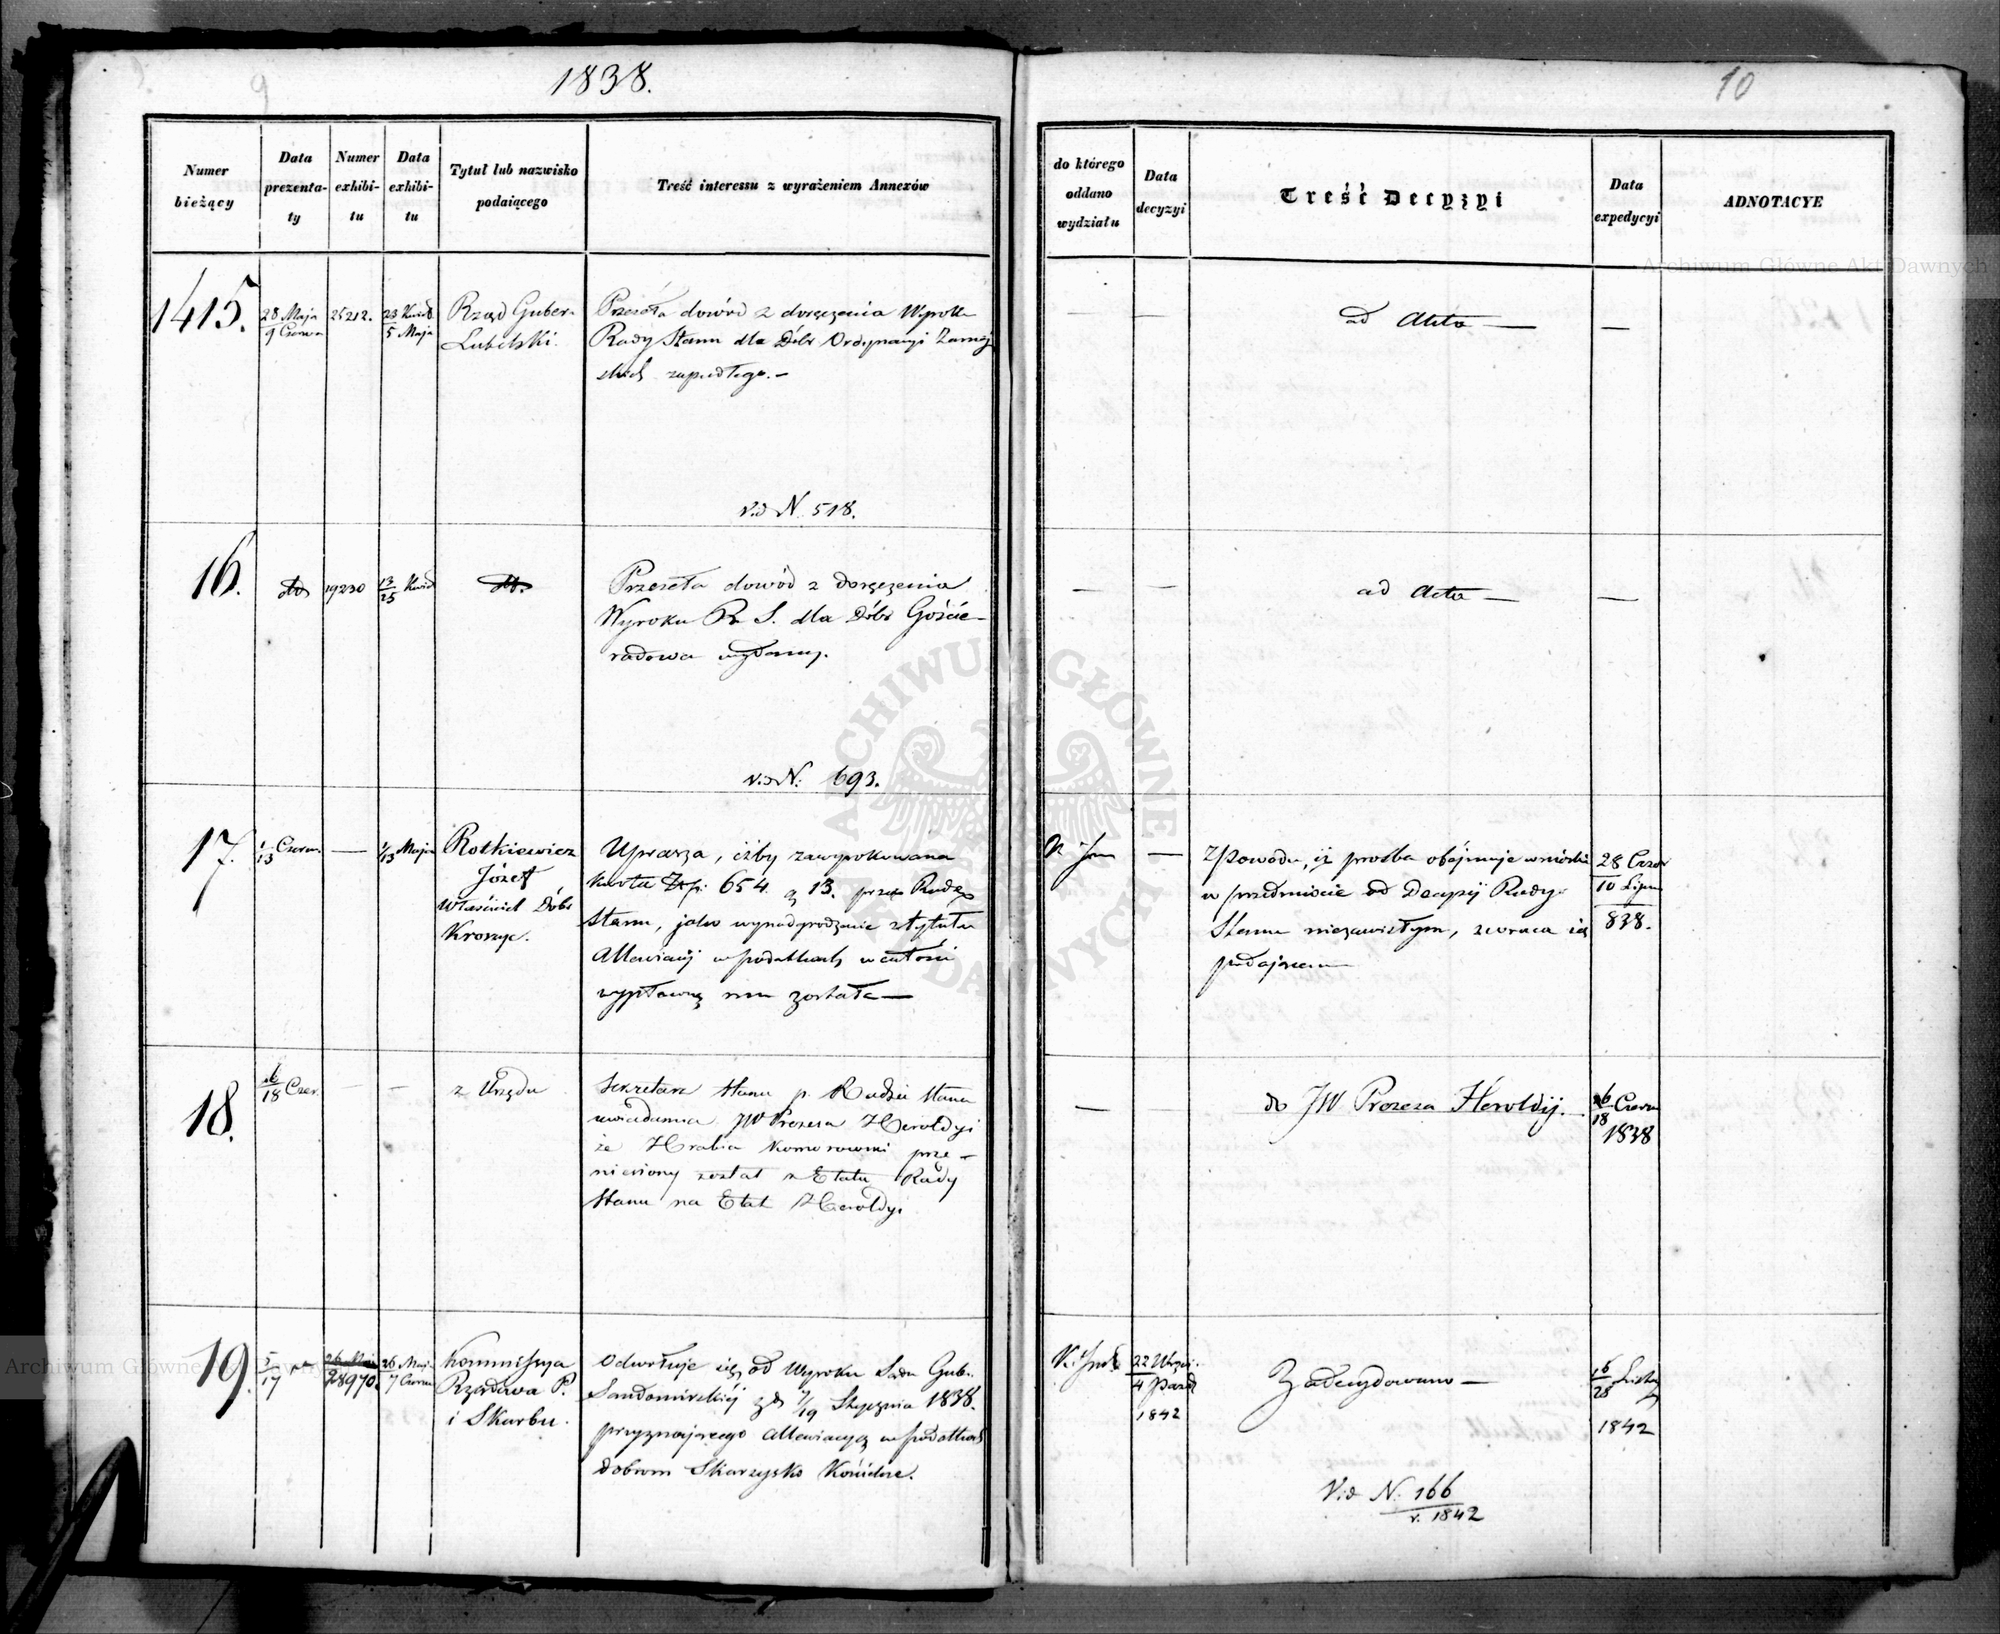 9
1838.
10
Numer
bieżący
Data
prezenta-
ty
Numer
exhibi-
tu
Data
exhibi-
tu
Tytuł lub nazwisko
podaiącego
Treść interessu z wyrażeniem Annexów
do którego
oddano
wydziału
Data
decyzyi
Treść Decyzyi
Data
expedycyi
ADNOTACYE
1415.
28 Maja
9 Czerwca
25212.
23 Kwiet
5 Maja
Rząd Guber.
Lubelski.
Przesyła dowód z doręczenia Wyroku
Rady Stanu dla Dóbr Ordynacyi Zamoj
skich zapadłego. —
Vid N. 518.
—
—
ad Acta —
—
16.
dto
19230
13/25 Kwiet
dto.
Przeseła dowód z doręczenia
Wyroku R. S. dla Dóbr Goście-
radowa wydany.
Vid N. 693.
—
—
ad Acta —
—
17.
1/13 Czerw.
—
1/13 Maja
Rotkiewicz
Józef
Właściciel Dóbr
Uprasza, iżby zawyrokowana
kwota Złp. 654. g 13. przez Radę
Stanu, jako wynadgrodzenie z tytułu
Allewiacyi w podatkach w całości
mu została —
—
Z powodu, iż prośba obejmuje wnioski
w przedmiocie od Decyzij Rady
Stanu niezawisłym, zwraca się
podającemu
28 Czer
10 Lipca
838.
18.
6/18 Czer.
—
—
z Urzędu
Sekretarz Stanu p. Radzie Stanu
uwiadamia JW Prezesa Heroldyi
że Hrabia Komorowski prze-
niesiony został z Etatu Rady
Stanu na Etat Heroldyi
—
do JW Prezesa Heroldij.
6/18 Czerw
1838
19.
5/17
26 Maj
28970.
26 Maj
7 Czerw
Kommissya
Rządowa P.
i Skarbu.
Odwołuje się od Wyroku Sądu Gub.
Sandomirskiéj z d 7/19 Stycznia 1838.
przyznającego Allewiacyą w podatkach
dobrom Skarzysko Kościelne.
22 Wrześ.
4 Paźd
1842
Zadecydowano —
Vid N. 166
r. 1842
16/28 Listop
1842
Archiwum Główne Akt Dawnych
Archiwum Główne Akt Dawnych
ARCHIWUM GŁÓWNE AKT DAWNYCH